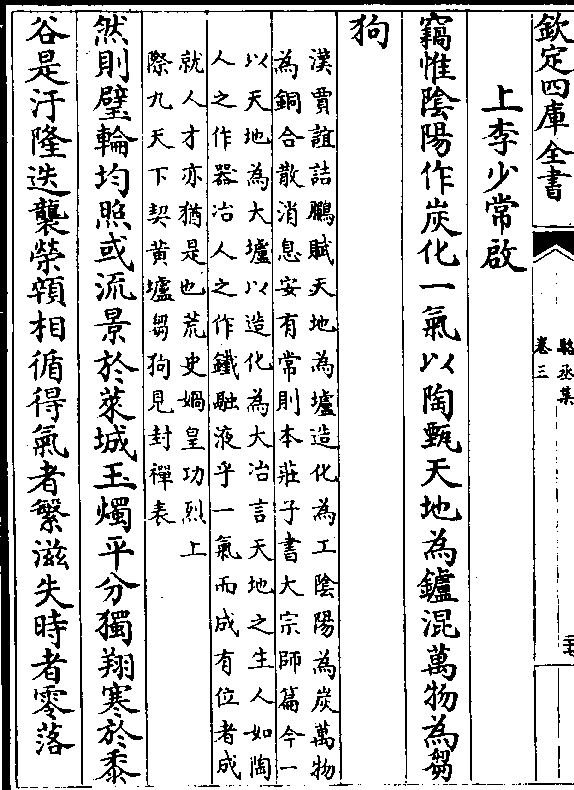 欽定四庫全書
駱丞集
卷三
上李少常啟
竊惟陰陽作炭化一氣以陶甄天地為鑪混萬物為芻
狗
漢賈誼詰鵬賦天地為壚造化為工陰陽為炭萬物
為銅合散消息安有常則本莊子書大宗師篇今一
以天地為大壚以造化為大冶言天地之生人如陶
人之作器冶人之作鐵融液乎一氣而成有位者成
就人才亦猶是也荒史媧皇功烈上
際九天下契黄壚芻狗見封禪表
然則璧輪均照或流景於萊城玉燭平分獨翔寒於黍
谷是汙隆迭襲榮顇相循得氣者繁滋失時者零落